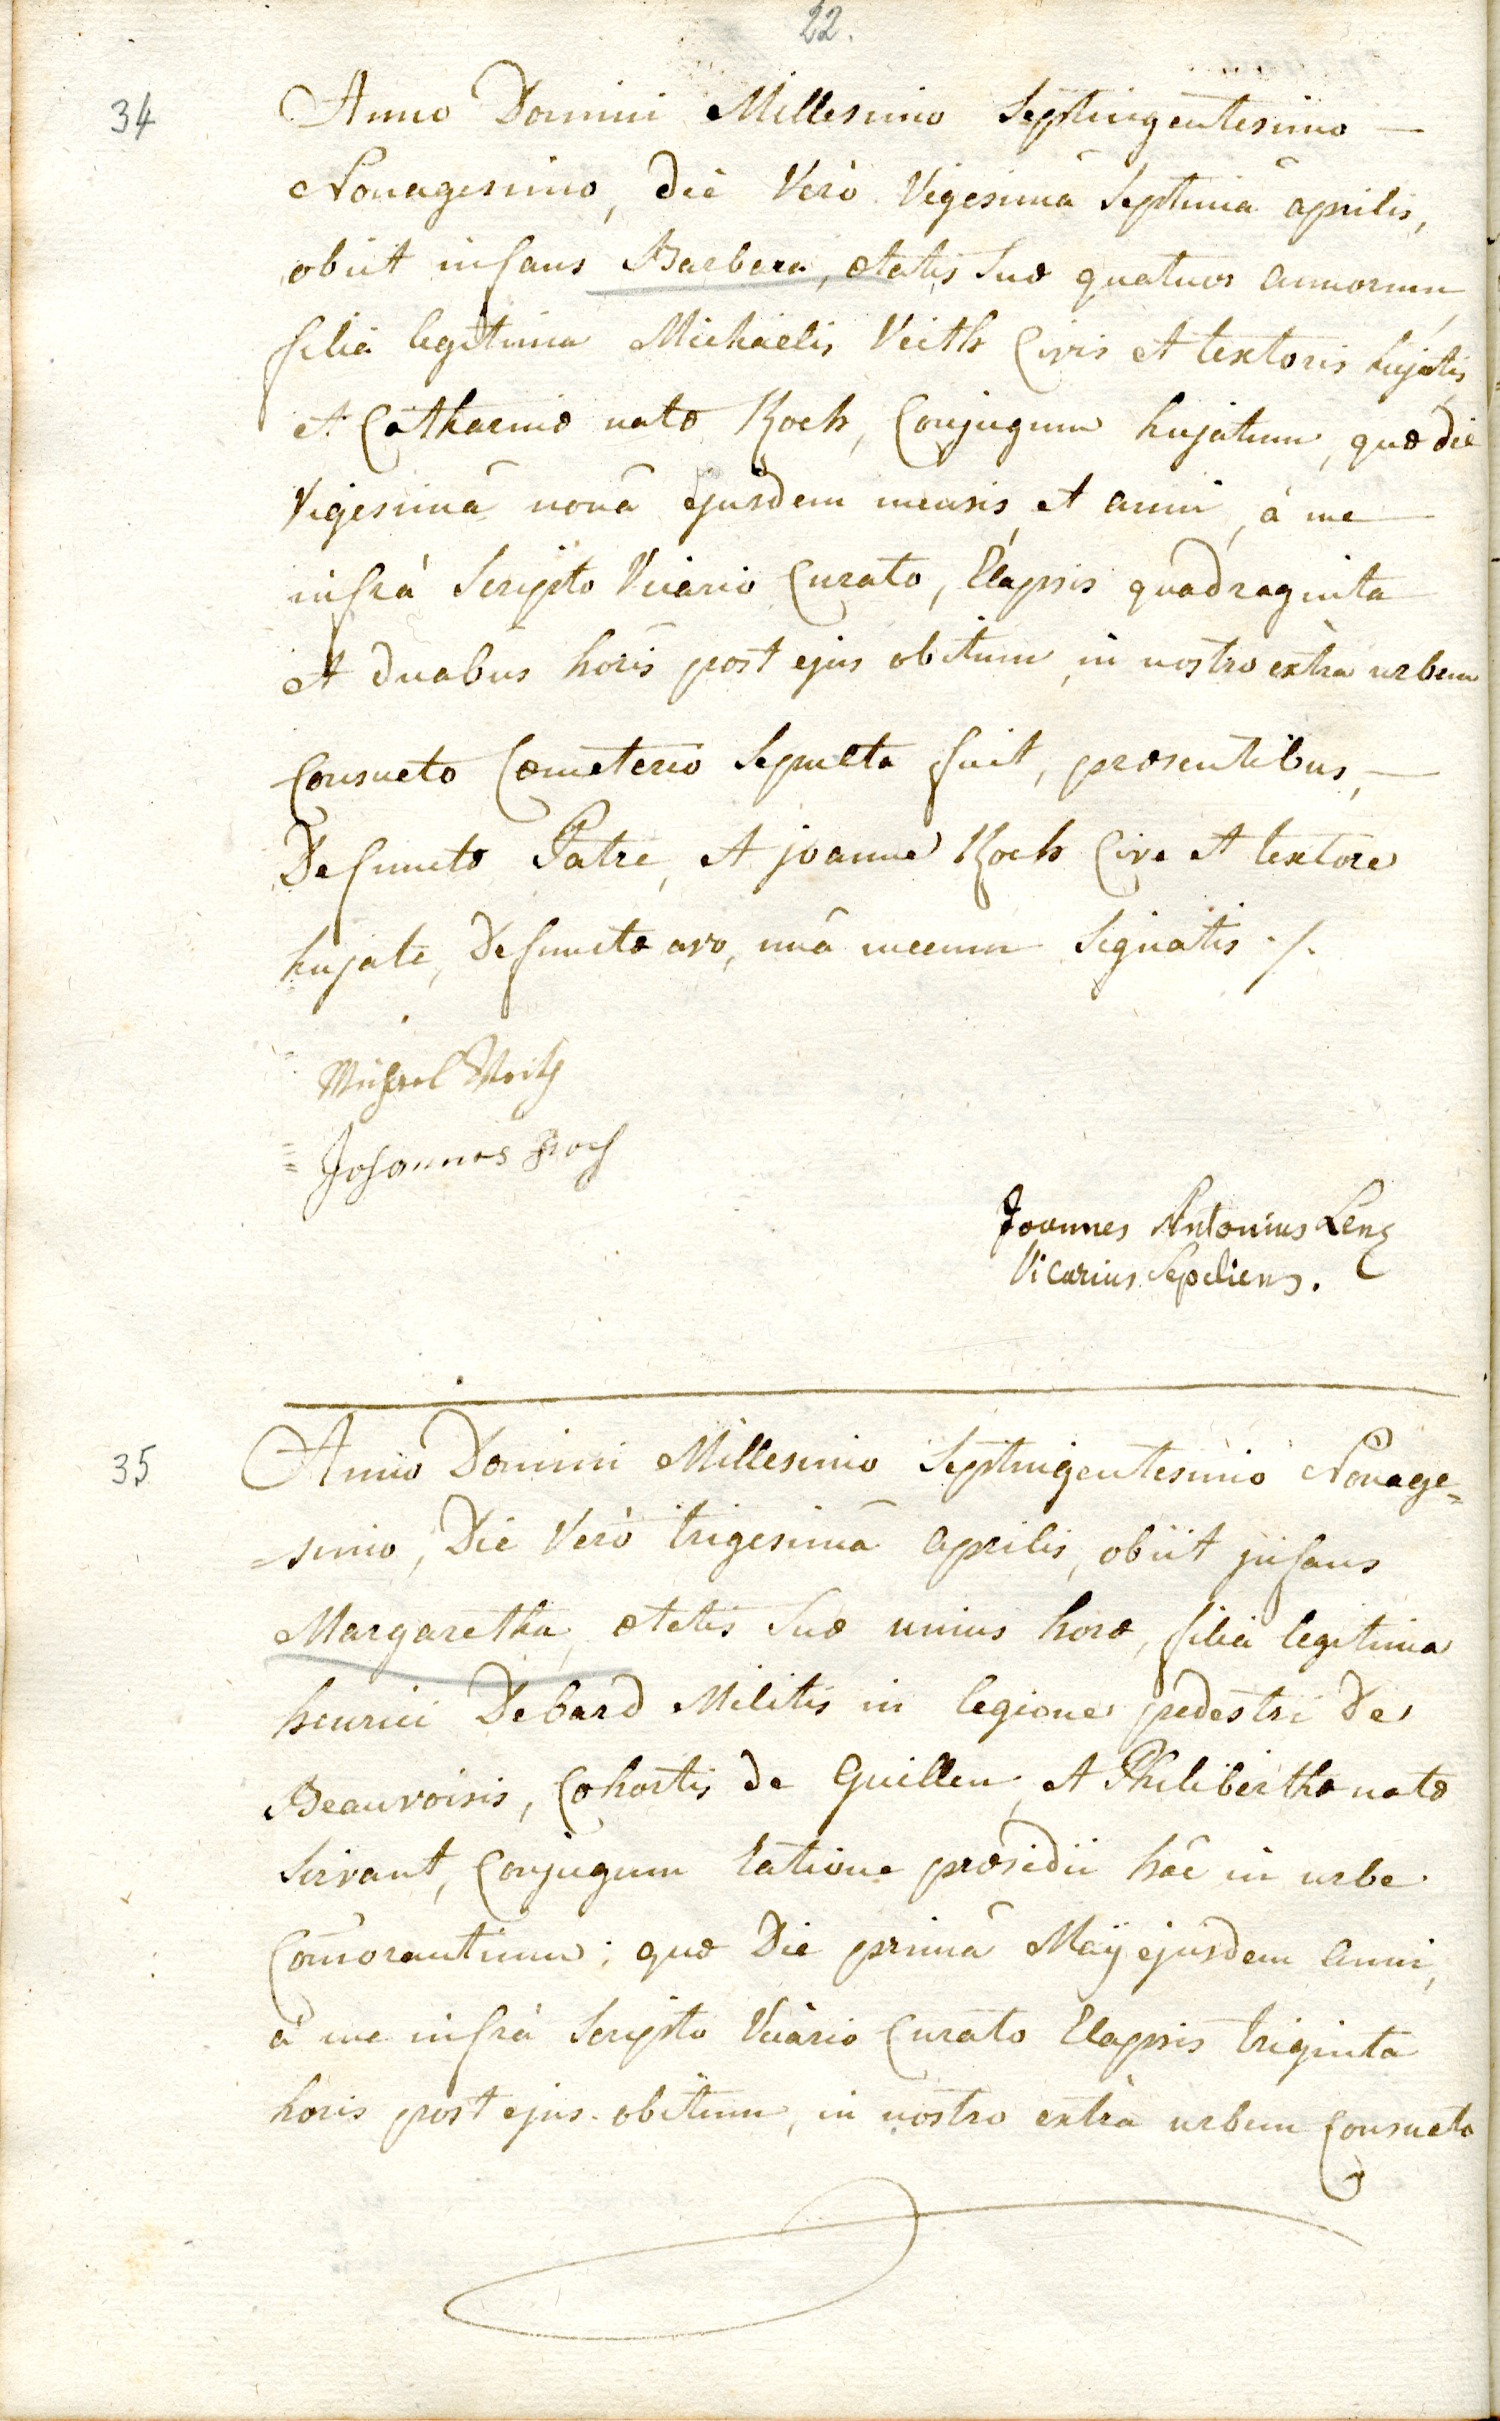 22.
34
Anno Domini Millesimo Septingentesimo —
Nonagesimo, die Verò Vigesimâ Septimâ aprilis,
obiit infans Barbara, ætatis Suæ quatuor annorum,
filia legitima Michaëlis Veith Civis et textoris hujatis,
et Catharinæ natæ Koch, Conjugum hujatum, quæ die
Vigesimâ nonâ ejusdem mensis, et anni, à me —
infrà Scripto Vicario Curato, Elapsis quadraginta
et duabus horis post ejus obitum, in nostro extra urbem
Consueto Cœmeterio Sepulta fuit, præsentibus, —
Defunctæ Patre, et joanne Koch Cive et textore
hujate, Defunctæ avo, unâ mecum Signatis ./.
Michael Veith
Johannes Koch
Joannes Antonius Lenz
Vicarius Sepeliens.
35
Anno Domini Millesimo Septingentesimo Nonage=
=simo, Die Verò trigesimâ aprilis, obiit jnfans
Margaretha, ætatis Suæ unius horæ, filia legitima
henrici Debard Militis in legione pedestri De
Beauvoisis, Cohortis de Guillen, et Philiberthæ natæ
Servant, Conjugum ratione præsidii hâc in urbe
Com̃orantium; quæ Die primâ Maÿ ejusdem anni,
à me infrà Scripto Vicario Curato Elapsis triginta
horis post ejus obitum, in nostro extrà urbem Consueto